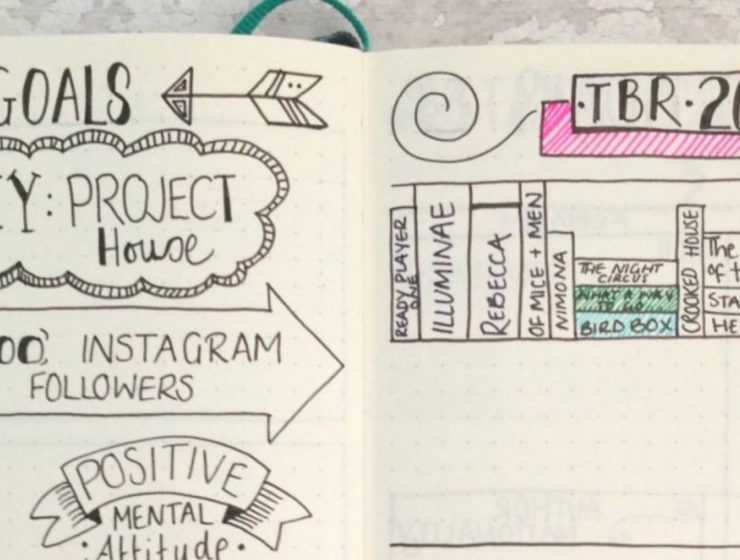 GOALS
Y: PROJECT
House
00' INSTAGRAM
FOLLOWERS
POSITIVE
MENTAL
·Attitude·
·TBR·20
READY PLAYER
ONE
ILLUMINAE
REBECCA
OF MICE + MEN
NIMONA
THE NIGHT
CIRCUS
WHAT A WAY
TO GO
BIRD BOX
CROOKED HOUSE
The
of t
STA
HE